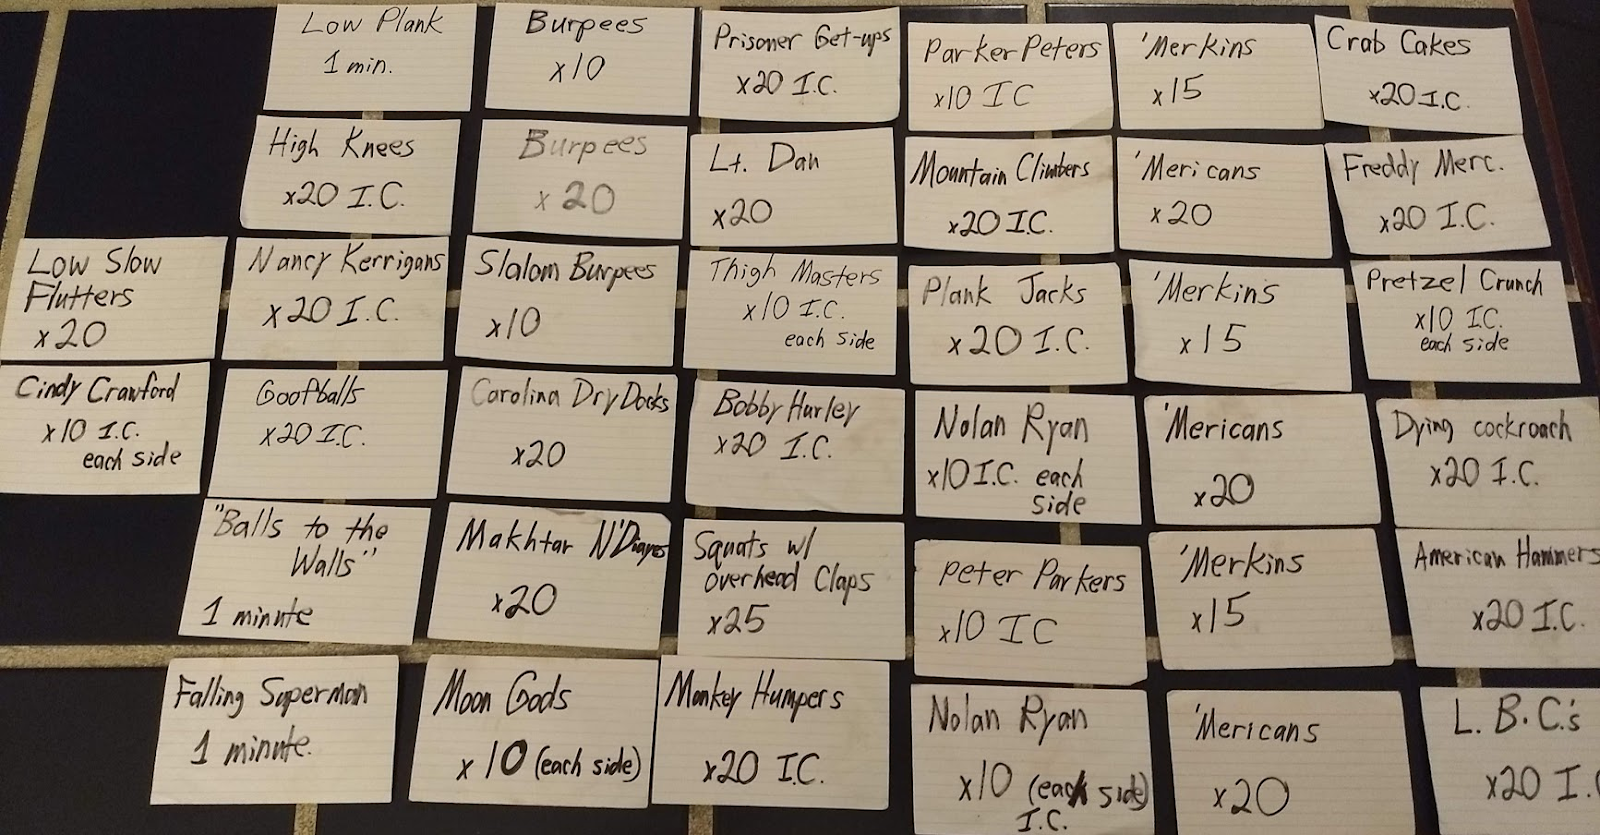 Low Plank
1 min.
Burpees
x10
Prisoner Get-ups
x20 I.C.
Parker Peters
x10 IC
'Merkins
x15
Crab Cakes
x20 I.C.
High Knees
x20 I.C.
Burpees
x 20
Lt. Dan
x20
Mountain Climbers
x20 I.C.
'Mericans
x20
Freddy Merc.
x20 I.C.
Low Slow
Flutters
x20
Nancy Kerrigans
x20 I.C.
Slalom Burpees
x10
Thigh Masters
x10 I.C.
each side
Plank Jacks
x20 I.C.
'Merkins
x15
Pretzel Crunch
x10 I.C.
each side
Cindy Crawford
x10 I.C.
each side
Goofballs
x20 I.C.
Carolina Dry Docks
x20
Bobby Hurley
x20 I.C.
Nolan Ryan
x10 I.C. each
side
'Mericans
x20
Dying cockroach
x20 I.C.
"Balls to the
Walls"
1 minute
Makhtar N'Diayes
x20
Squats w/
overhead Claps
x25
Peter Parkers
x10 IC
'Merkins
x15
American Hammers
x20 I.C.
Falling Superman
1 minute.
Moon Gods
x 10 (each side)
Monkey Humpers
x20 I.C.
Nolan Ryan
x10 (each side)
I.C.
'Mericans
x20
L. B. C.'s
x20 I.C